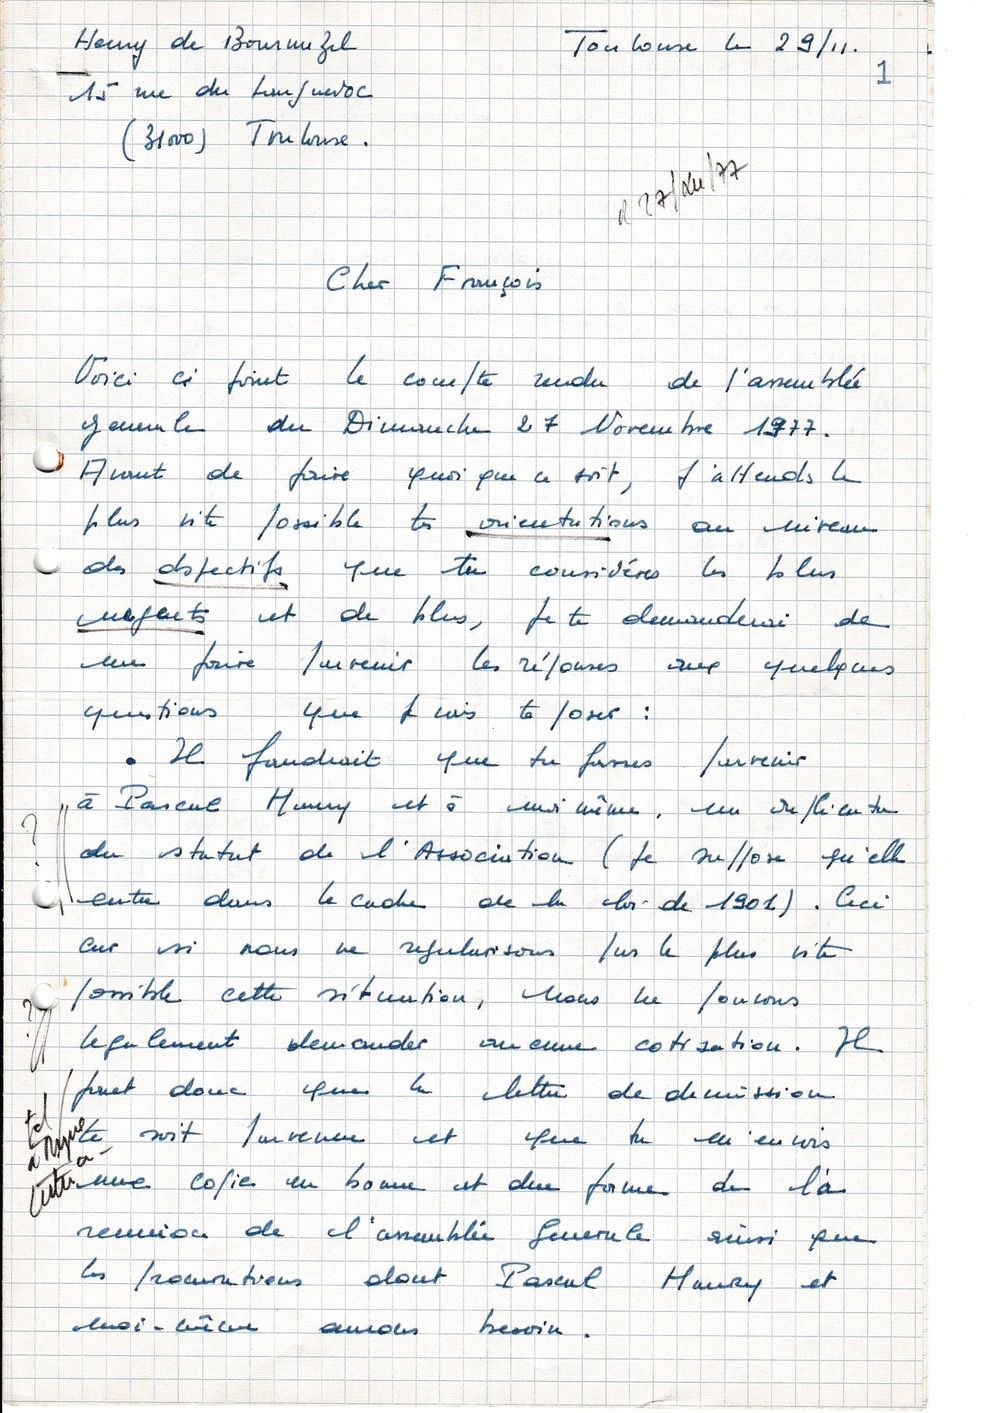 Henry de Bournazel
Toulouse le 29/11.
1
15 rue du Languedoc
(31000) Toulouse.
R 27/XII/77
Cher François
Voici ci joint le compte rendu de l'assemblée
generale du Dimanche 27 Novembre 1977.
Avant de faire quoi que ce soit, j'attends le
plus vite possible tes orientations au niveau
des objectifs que tu considéres les plus
urgents et de plus, je te demanderai de
me faire parvenir les réponses aux quelques
questions que je vais te poser :
• Il faudrait que tu fasses parvenir
? à Pascal Maury et à moi même, un
du statut de l'Association (je suppose qu'elle
entre dans le cadre de la loi de 1901). Ceci
car si nous ne regularisons pas le plus vite
? possible cette situation, nous ne pouvons
legalement demander aucune cotisation. Il
faut donc que la lettre de demission
te soit parvenue et que tu m'envois
une copie en bonne et due forme de la
reunion de l'assemblée Generale ainsi que
les procurations dont Pascal Maury et
moi-même avons besoin.